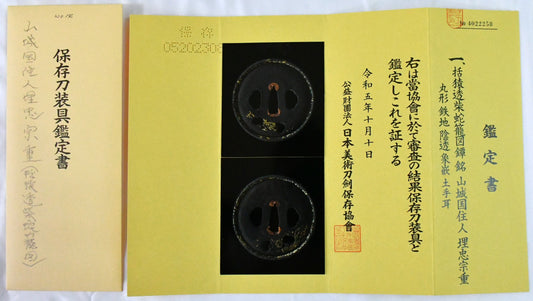 鑑定書
一、括猿透柴蛇籠図鐔 銘 山城国住人 埋忠宗重
丸形 鉄地 陰透 象嵌 土手耳
右は當協會に於て審査の結果保存刀装具と
鑑定しこれを証する
令和五年十月十日
公益財團法人 日本美術刀劍保存協會
№ 4022258
保存
保存刀装具鑑定書
山城国住人埋忠宗重